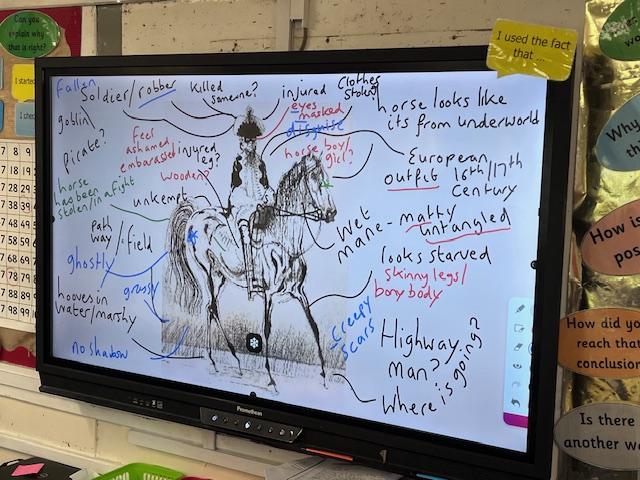 Can you
explain why
that is right?
I started
I used the fact
that ...
Fallen
Soldier/robber
killed
someone?
injured
Clothes
Stole?
goblin
eyes
masked
disguise
horse looks like
its from underworld
pirate?
feel
ashamed
embarassed
injured
leg?
wooden?
horse boy/
girl?
European
outfit 16th/17th
Century
horse
has been
stolen/in a fight
unkempt
Wet
mane - matty
untangled
path
way / field
ghostly
grassy
looks starved
skinny legs/
bony body
hooves in
water/marshy
no shadow
creepy
scars
Highway
man?
Where is going?
Promethean
Why
How is
pos
How did yo
reach that
conclusion
Is there
another wa